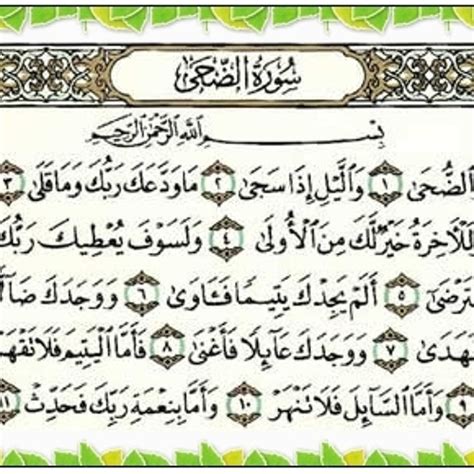 سُورَةُ الضُّحَىٰ
بِسْمِ اللَّهِ الرَّحْمَٰنِ الرَّحِيمِ
الضُّحَىٰ ١ وَالَّيْلِ إِذَا سَجَىٰ ٢ مَاوَدَّعَكَ رَبُّكَ وَمَاقَلَىٰ ٣
لِلْآخِرَةُ خَيْرٌ لَّكَ مِنَ الْأُولَىٰ ٤ وَلَسَوْفَ يُعْطِيكَ رَبُّكَ
تَرْضَىٰ ٥ أَلَمْ يَجِدْكَ يَتِيمًا فَـَٔاوَىٰ ٦ وَوَجَدَكَ ضَالًّا
فَهَدَىٰ ٧ وَوَجَدَكَ عَآئِلًا فَأَغْنَىٰ ٨ فَأَمَّا الْيَتِيمَ فَلَا تَقْهَرْ
٩ وَأَمَّا السَّآئِلَ فَلَا تَنْهَرْ ١٠ وَأَمَّا بِنِعْمَةِ رَبِّكَ فَحَدِّثْ ١١